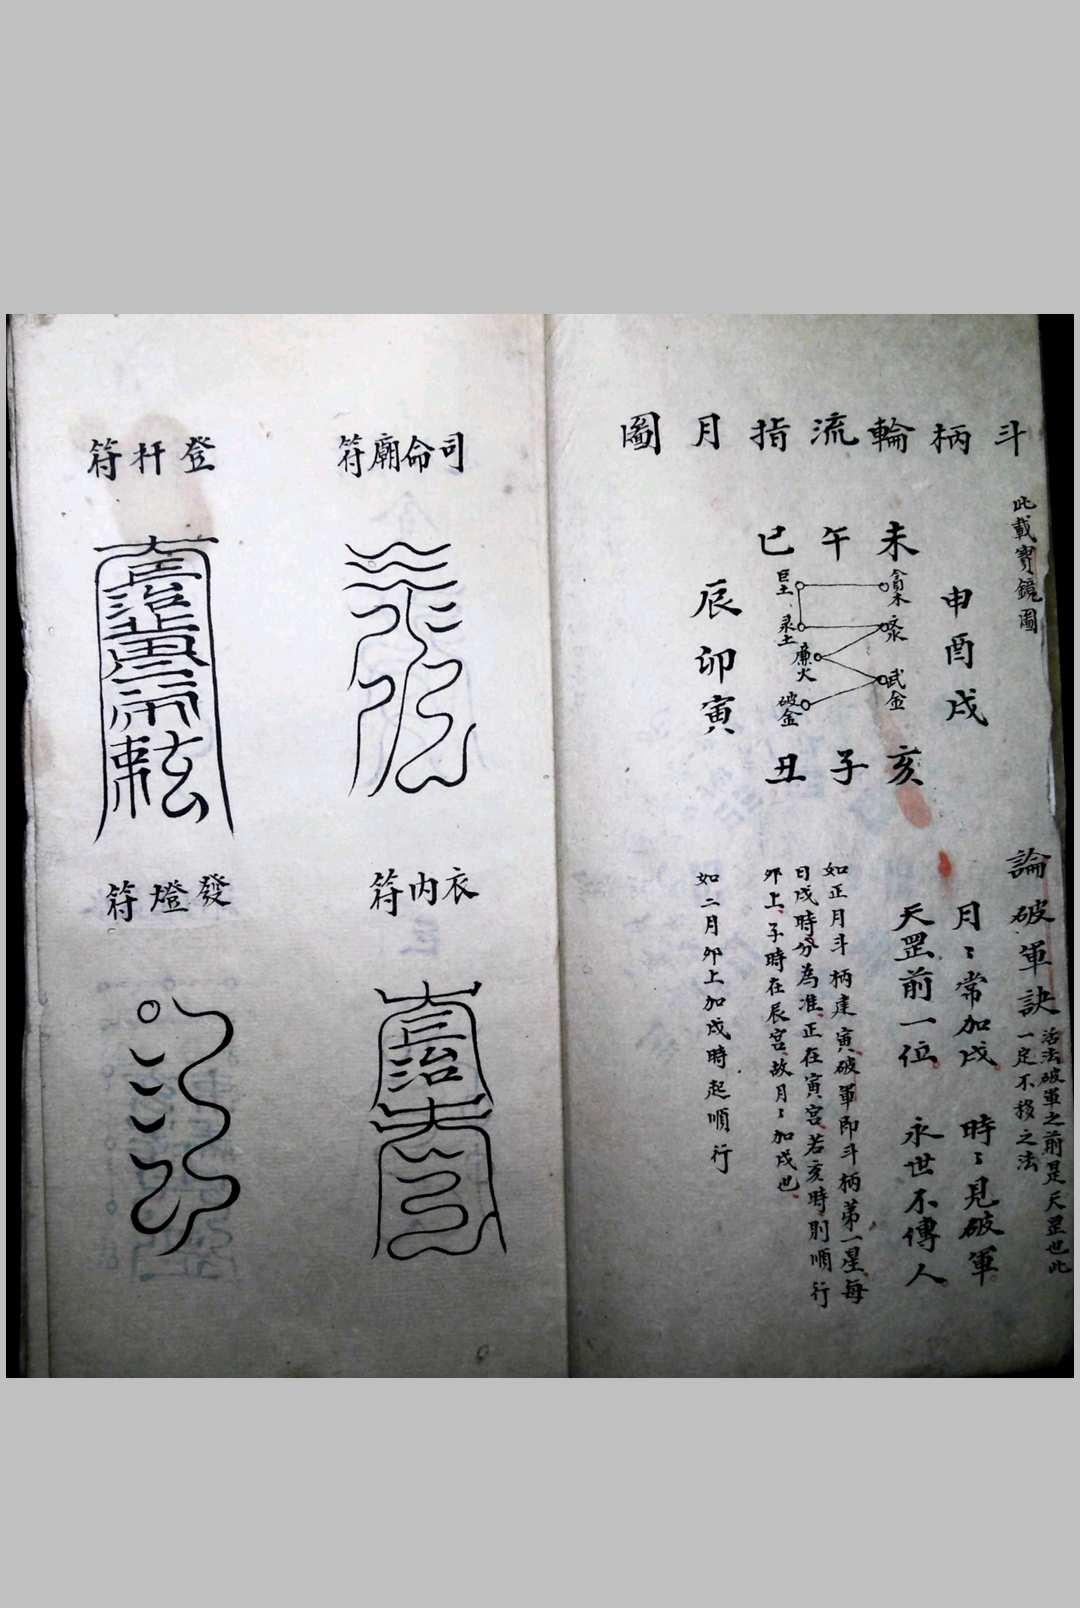 斗柄輪流指月圖
此載寶鏡圖
未午巳
申酉戌
辰卯寅
亥子丑
貪木
武金
巨土
录土
廉火
破金
論破軍訣
活法破軍之前是天罡也此
一定不移之法
月〻常加戌 時〻見破軍
天罡前一位 永世不傳人
如正月斗柄建寅破軍即斗柄第一星每
日戌時分為准正在寅宮若亥時則順行
卯上子時在辰宮故月〻加戌也
如二月卯上加戌時起順行
司命廟符
衣内符
登杆符
發燈符